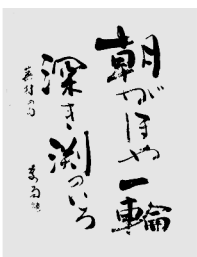 朝がほや一輪
深き淵のいろ
蕪村の句